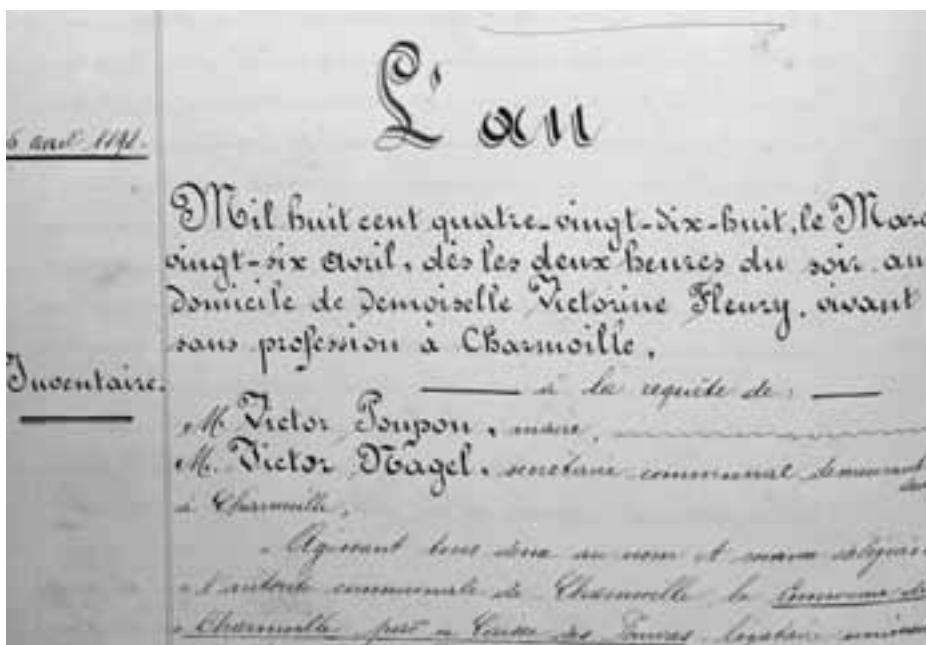 L'an
avril 1898.
Mil huit cent quatre-vingt-dix-huit, le Mar
vingt-six avril, dès les deux heures du soir, au
domicile de Demoiselle Victorine Fleury, vivant
sans profession à Charmoille,
Inventaire.
à la requête de :
M. Victor Poupon, maire,
M. Victor Nagel, secrétaire communal demeurant
à Charmoille,
Agissant tous deux au nom et comme
l'autorité communale de Charmoille, la Commune de
Charmoille, pour sa Caisse des Pauvres,